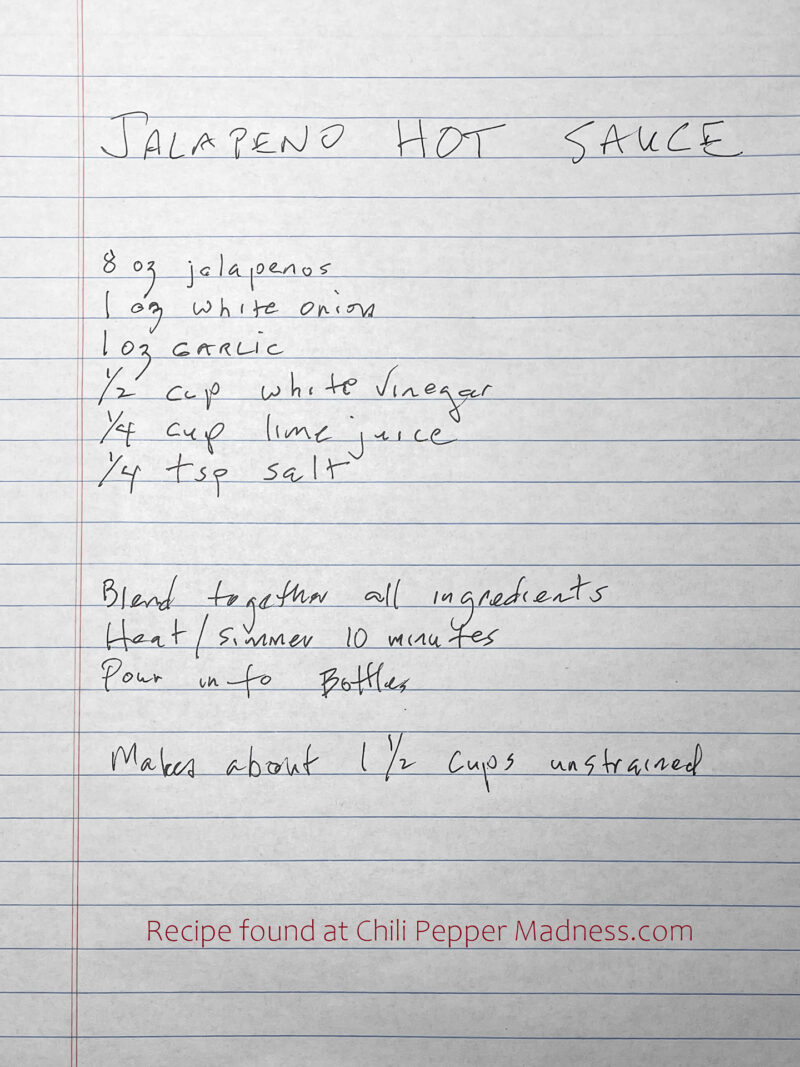 JALAPENO HOT SAUCE
8 oz jalapenos
1 oz white onion
1 oz GARLIC
1/2 cup white vinegar
1/4 cup lime juice
1/4 tsp salt
Blend together all ingredients
Heat/simmer 10 minutes
Pour in to Bottles
Makes about 1 1/2 cups unstrained
Recipe found at Chili Pepper Madness.com